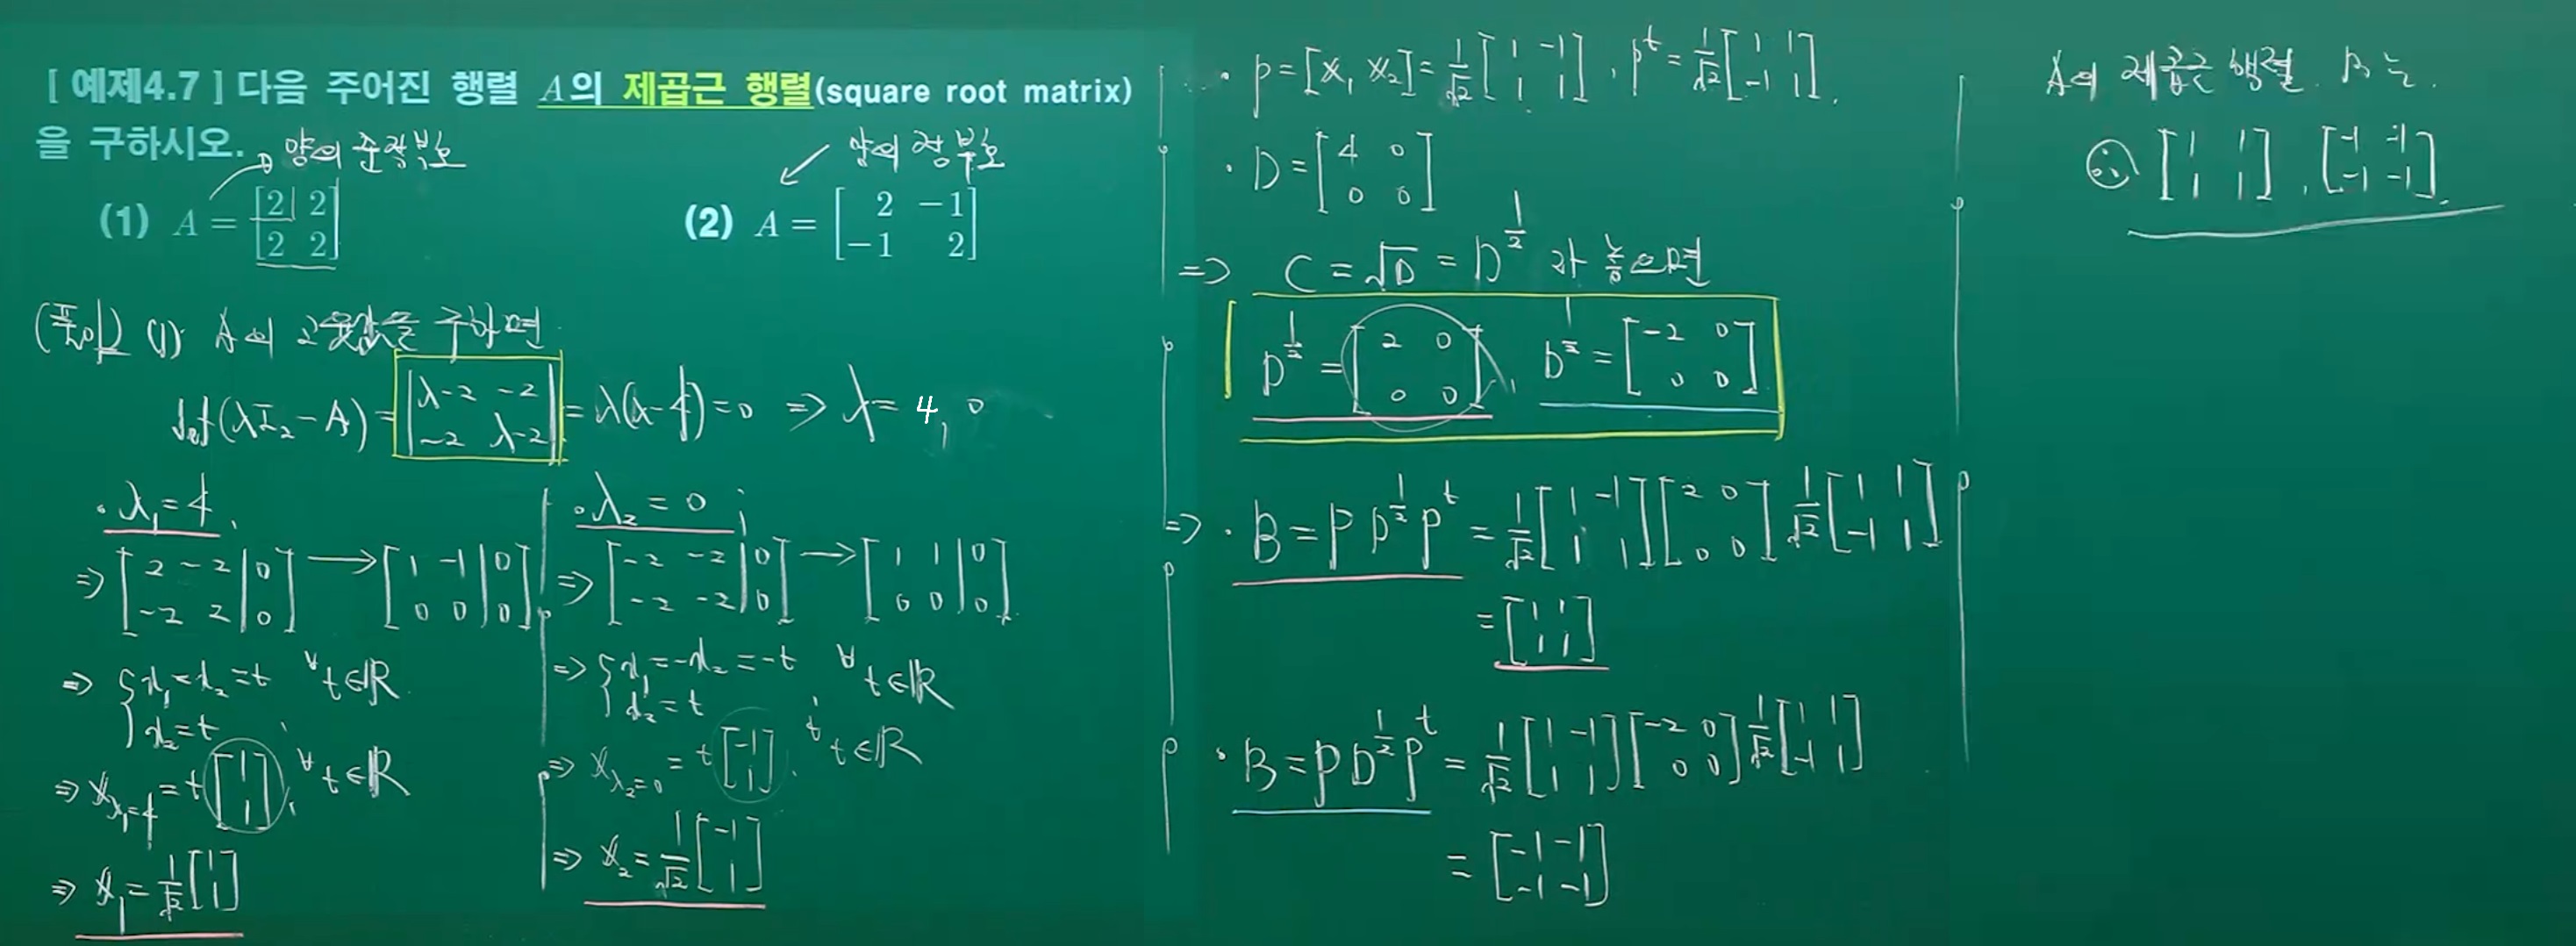 [ 예제4.7 ] 다음 주어진 행렬 A의 제곱근 행렬(square root matrix)
을 구하시오.
양의 준정부호
양의 정부호
(1) A = [2 2; 2 2]
(2) A = [2 -1; -1 2]
(풀이) (1) A의 고유값을 구하면
det(λI₂ - A) = |λ-2 -2; -2 λ-2| = λ(λ-4) = 0 ⇒ λ = 4, 0
· λ₁ = 4,
⇒ [2 -2 | 0; -2 2 | 0] → [1 -1 | 0; 0 0 | 0]
⇒ { x₁ = x₂ = t ∀t∈ℝ
x₂ = t
⇒ 𝕩_{λ₁=4} = t[1; 1], ∀t∈ℝ
⇒ 𝕩₁ = 1/√2 [1; 1]
· λ₂ = 0 ;
⇒ [-2 -2 | 0; -2 -2 | 0] → [1 1 | 0; 0 0 | 0]
⇒ { x₁ = -x₂ = -t ∀t∈ℝ
x₂ = t
⇒ 𝕩_{λ₂=0} = t[-1; 1], ∀t∈ℝ
⇒ 𝕩₂ = 1/√2 [-1; 1]
· P = [𝕩₁ 𝕩₂] = 1/√2 [1 -1; 1 1], Pᵗ = 1/√2 [1 1; -1 1].
· D = [4 0; 0 0]
⇒ C = √D = D^{1/2} 라 놓으면
D^{1/2} = [2 0; 0 0], D^{1/2} = [-2 0; 0 0]
⇒ · B = P D^{1/2} Pᵗ = 1/√2 [1 -1; 1 1] [2 0; 0 0] 1/√2 [1 1; -1 1]
= [1 1; 1 1]
· B = P D^{1/2} Pᵗ = 1/√2 [1 -1; 1 1] [-2 0; 0 0] 1/√2 [1 1; -1 1]
= [-1 -1; -1 -1]
A의 제곱근 행렬 B는
∴ [1 1; 1 1], [-1 -1; -1 -1].